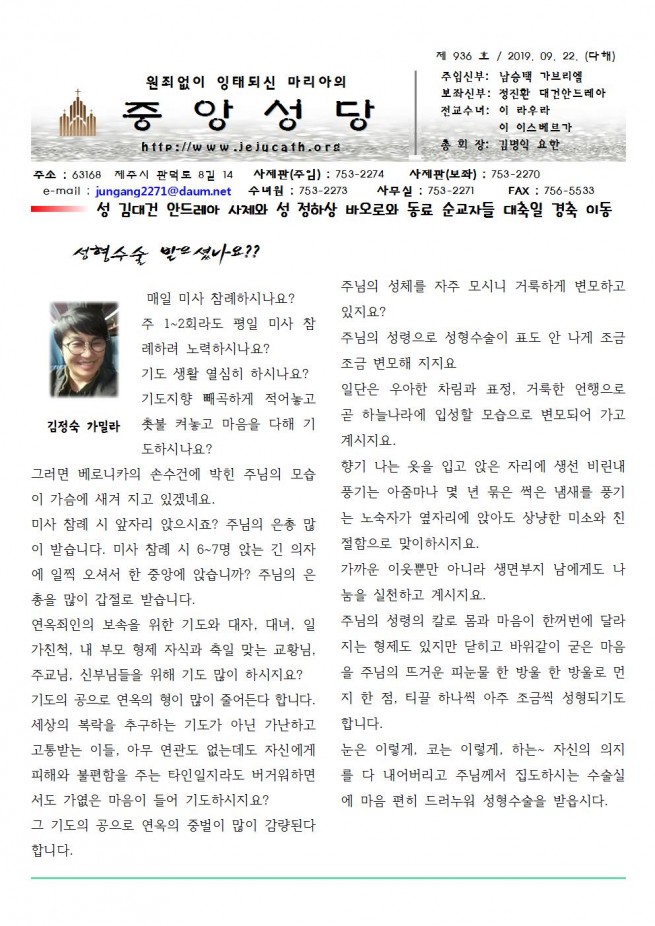 제 936 호 / 2019. 09. 22. (다해)
원죄없이 잉태되신 마리아의
중 앙 성 당
http://www.jejucath.org
주임신부: 남승택 가브리엘
보좌신부: 정진환 대건안드레아
전교수녀: 이 라우라
이 이스베르가
총 회 장: 김명익 요한
주소 : 63168 제주시 관덕로 8길 14 사제관(주임) : 753-2274 사제관(보좌) : 753-2270
e-mail : jungang2271@daum.net 수녀원 : 753-2273 사무실 : 753-2271 FAX : 756-5533
성 김대건 안드레아 사제와 성 정하상 바오로와 동료 순교자들 대축일 경축 이동
성형수술 받으셨나요??
김정숙 가밀라
매일 미사 참례하시나요?
주 1~2회라도 평일 미사 참
례하려 노력하시나요?
기도 생활 열심히 하시나요?
기도지향 빼곡하게 적어놓고
촛불 켜놓고 마음을 다해 기
도하시나요?
그러면 베로니카의 손수건에 박힌 주님의 모습
이 가슴에 새겨 지고 있겠네요.
미사 참례 시 앞자리 앉으시죠? 주님의 은총 많
이 받습니다. 미사 참례 시 6~7명 앉는 긴 의자
에 일찍 오셔서 한 중앙에 앉습니까? 주님의 은
총을 많이 갑절로 받습니다.
연옥죄인의 보속을 위한 기도와 대자, 대녀, 일
가친척, 내 부모 형제 자식과 축일 맞는 교황님,
주교님, 신부님들을 위해 기도 많이 하시지요?
기도의 공으로 연옥의 형이 많이 줄어든다 합니다.
세상의 복락을 추구하는 기도가 아닌 가난하고
고통받는 이들, 아무 연관도 없는데도 자신에게
피해와 불편함을 주는 타인일지라도 버거워하면
서도 가엾은 마음이 들어 기도하시지요?
그 기도의 공으로 연옥의 중벌이 많이 감량된다
합니다.
주님의 성체를 자주 모시니 거룩하게 변모하고
있지요?
주님의 성령으로 성형수술이 표도 안 나게 조금
조금 변모해 지지요
일단은 우아한 차림과 표정, 거룩한 언행으로
곧 하늘나라에 입성할 모습으로 변모되어 가고
계시지요.
향기 나는 옷을 입고 앉은 자리에 생선 비린내
풍기는 아줌마나 몇 년 묶은 썩은 냄새를 풍기
는 노숙자가 옆자리에 앉아도 상냥한 미소와 친
절함으로 맞이하시지요.
가까운 이웃뿐만 아니라 생면부지 남에게도 나
눔을 실천하고 계시지요.
주님의 성령의 칼로 몸과 마음이 한꺼번에 달라
지는 형제도 있지만 닫히고 바위같이 굳은 마음
을 주님의 뜨거운 피눈물 한 방울 한 방울로 먼
지 한 점, 티끌 하나씩 아주 조금씩 성형되기도
합니다.
눈은 이렇게, 코는 이렇게, 하는~ 자신의 의지
를 다 내어버리고 주님께서 집도하시는 수술실
에 마음 편히 드러누워 성형수술을 받읍시다.